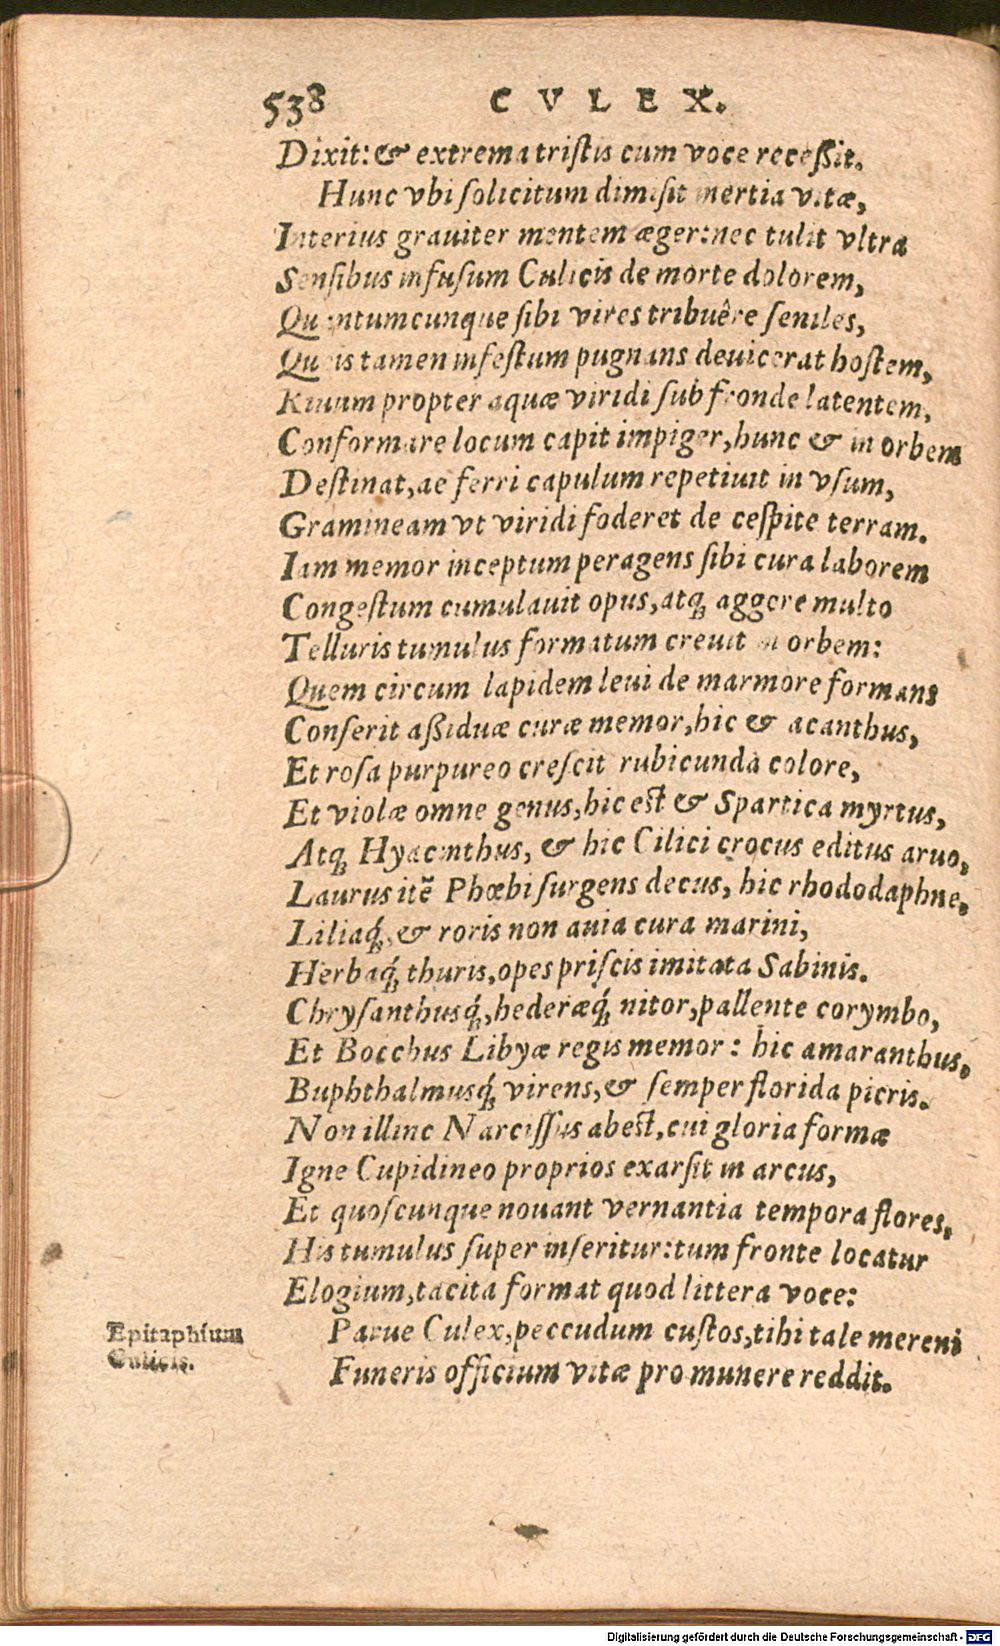 538 CVLEX.
Dixit: & extrema tristis cum voce recessit.
Hunc vbi solicitum dimisit inertia vitæ,
Interius grauiter mentem æger: nec tulit vltra
Sensibus infusum Culicis de morte dolorem,
Quantumcunque sibi vires tribuêre seniles,
Queis tamen infestum pugnans deuicerat hostem,
Riuum propter aquæ viridi sub fronde latentem,
Conformare locum capit impiger, hunc & in orbem
Destinat, ac ferri capulum repetiuit in vsum,
Gramineam vt viridi foderet de cespite terram.
Iam memor inceptum peragens sibi cura laborem
Congestum cumulauit opus, atq; aggere multo
Telluris tumulus formatum creuit in orbem:
Quem circum lapidem leui de marmore formans
Conserit assiduæ curæ memor, hic & acanthus,
Et rosa purpureo crescit rubicunda colore,
Et violæ omne genus, hic est & Spartica myrtus,
Atq; Hyacinthus, & hic Cilici crocus editus aruo,
Laurus itē Phœbi surgens decus, hic rhododaphne,
Liliaq́;, & roris non auia cura marini,
Herbaq́; thuris, opes priscis imitata Sabinis.
Chrysanthusq́;, hederæq́; nitor, pallente corymbo,
Et Bocchus Libyæ regis memor: hic amaranthus,
Buphthalmusq́; virens, & semper florida picris.
Non illinc Narcissus abest, cui gloria formæ
Igne Cupidineo proprios exarsit in arcus,
Et quoscunque nouant vernantia tempora flores,
His tumulus super inseritur: tum fronte locatur
Elogium, tacita format quod littera voce:
Epitaphium Parue Culex, peccudum custos, tibi tale merenti
Culicis. Funeris officium vitæ pro munere reddit.
Digitalisierung gefördert durch die Deutsche Forschungsgemeinschaft - DFG